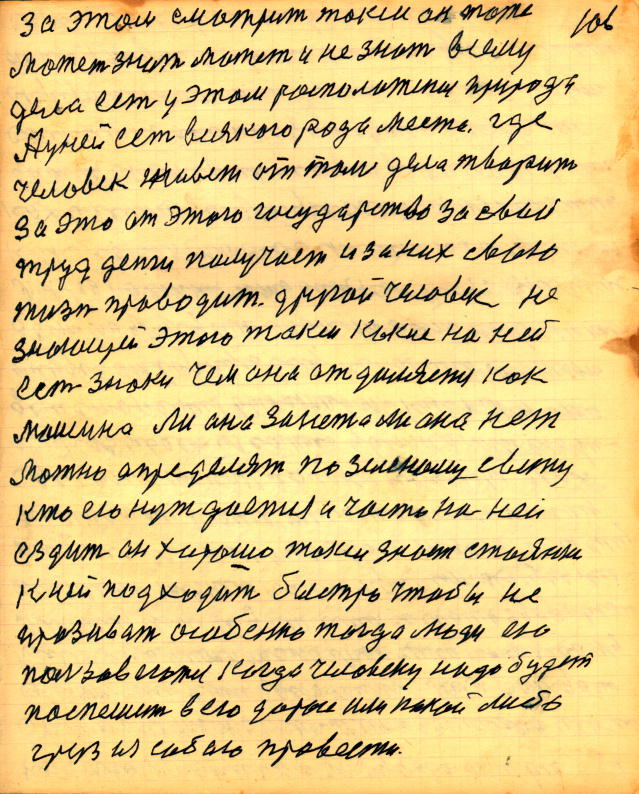 За этом смотрит такси он тоже 106
может знат может и не знат всему
дела ест у этом росположении природа
А у ней ест всякого рода места. где
человек живет от том дела творит
За это от этого государство за свой
труд денги получает и за них свою
жизн проводит. другой человек не
знающей этого такси какие на ней
ест знаки чем она отделяется как
машина ли она занета ли она нет
можно определят по зеленому свету
кто ею нуждается и часто на ней
ездит он хорошо такси знает стоянки
к ней подходит быстро чтобы не
прозиват особено тогда люди ею
ползовалис когда человеку надо будет
поспешит в его дороге или какой либо
груз из собою провести.